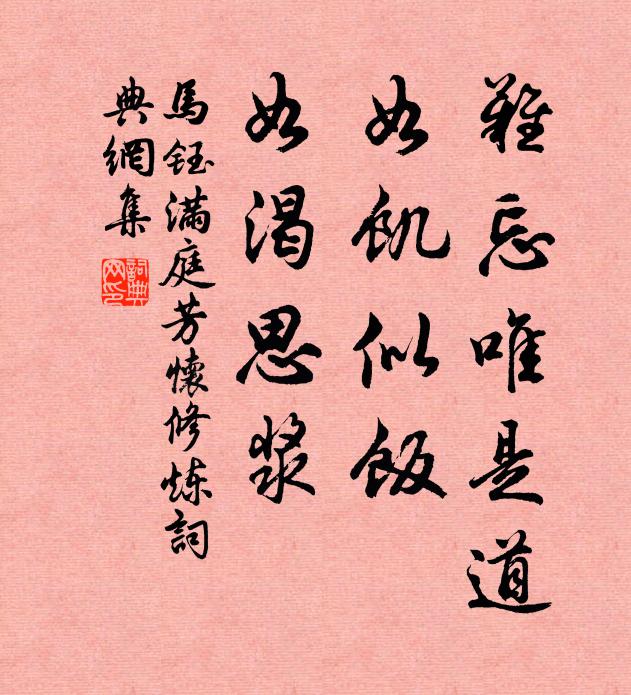 難忘唯是道
如飢似飯
如渴思漿
馬鈺滿庭芳懷修炼詞
典網集
詞典
网印